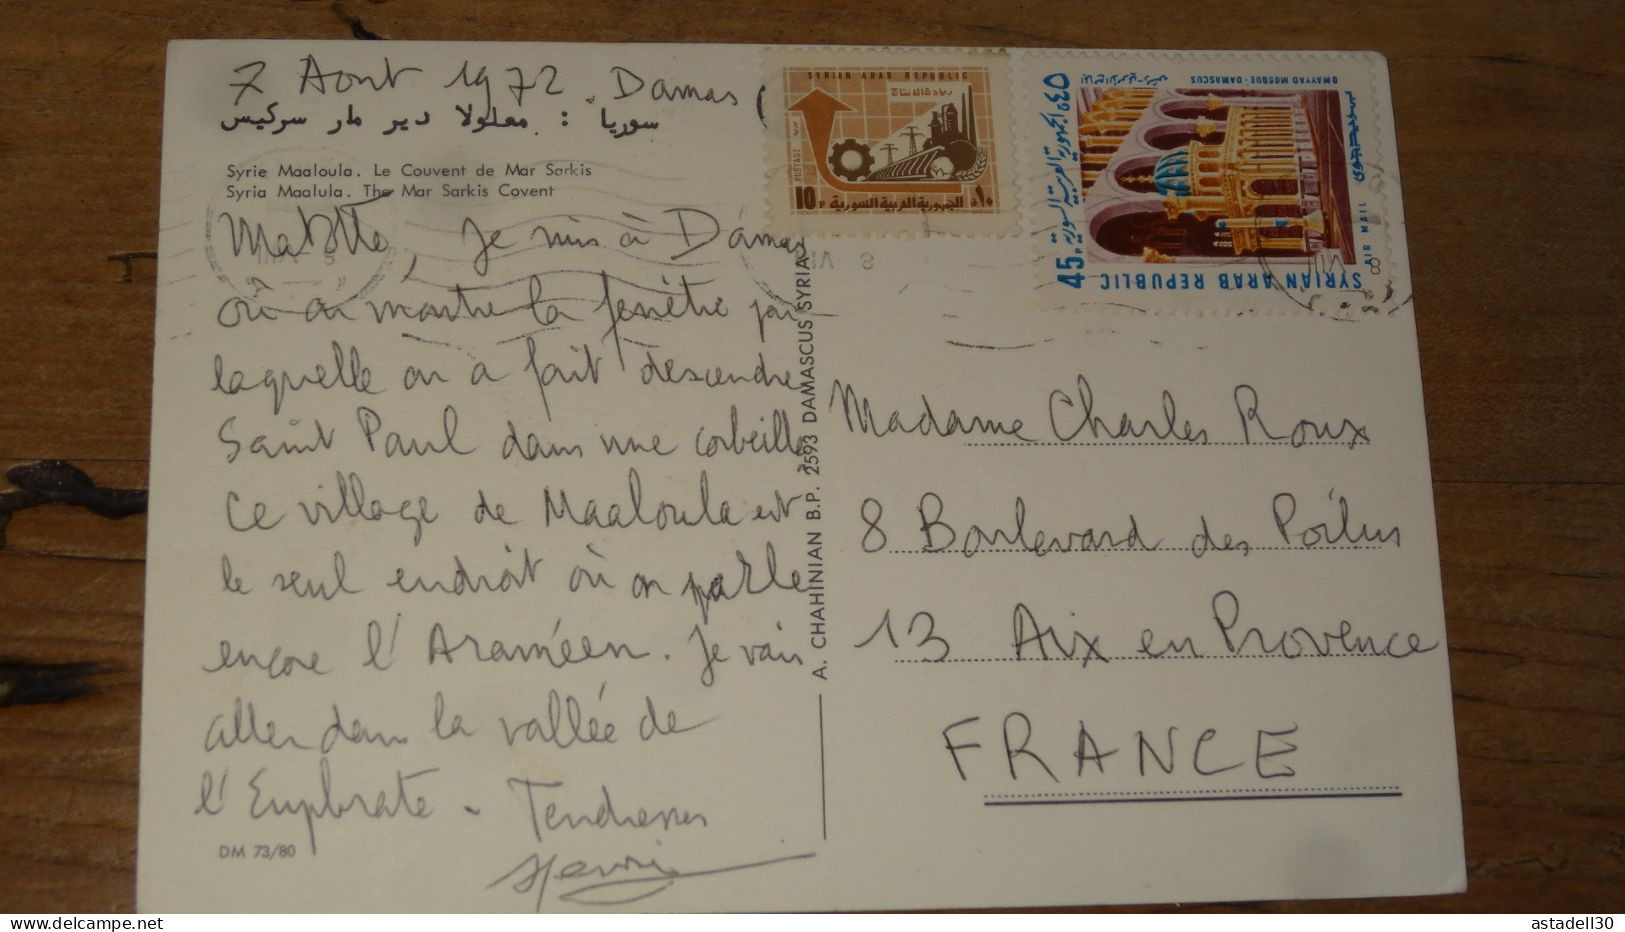 7 Août 1972. Damas
سوريا : معلولا دير مار سركيس
Syrie Maaloula. Le Couvent de Mar Sarkis
Syria Maalula. The Mar Sarkis Covent
je suis à Damas
où on montre la fenêtre par
laquelle on a fait descendre
Saint Paul dans une corbeille
Ce village de Maaloula est
le seul endroit où on parle
encore l'Araméen. Je vais
aller dans la vallée de
l'Euphrate - Tendresses
Henri
DM 73/80
A. CHAHINIAN B.P. 2593 DAMASCUS SYRIA
SYRIAN ARAB REPUBLIC
POSTAGE
10 P
الجمهورية العربية السورية
OMAYYAD MOSQUE-DAMASCUS
الجمهورية العربية السورية
AIR MAIL
45 P
SYRIAN ARAB REPUBLIC
VIII 8
Madame Charles Roux
8 Boulevard des Poilus
13 Aix en Provence
FRANCE
astadell30